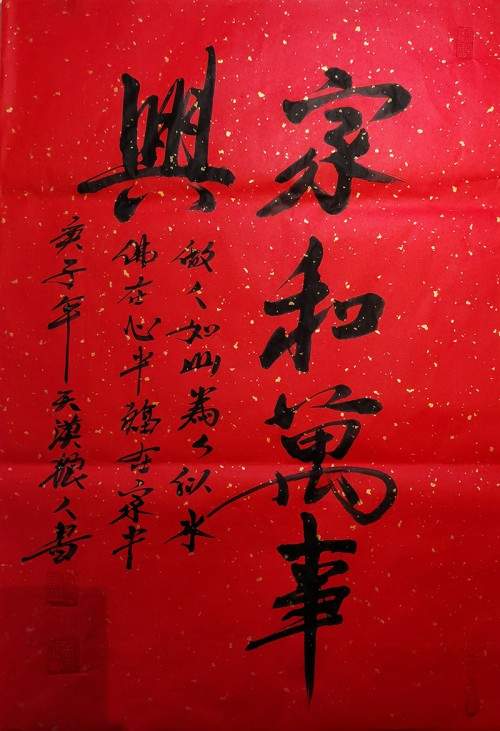 家和萬事
興
做人如山為人似水
佛在心中福在家中
庚子年天漢懷人書